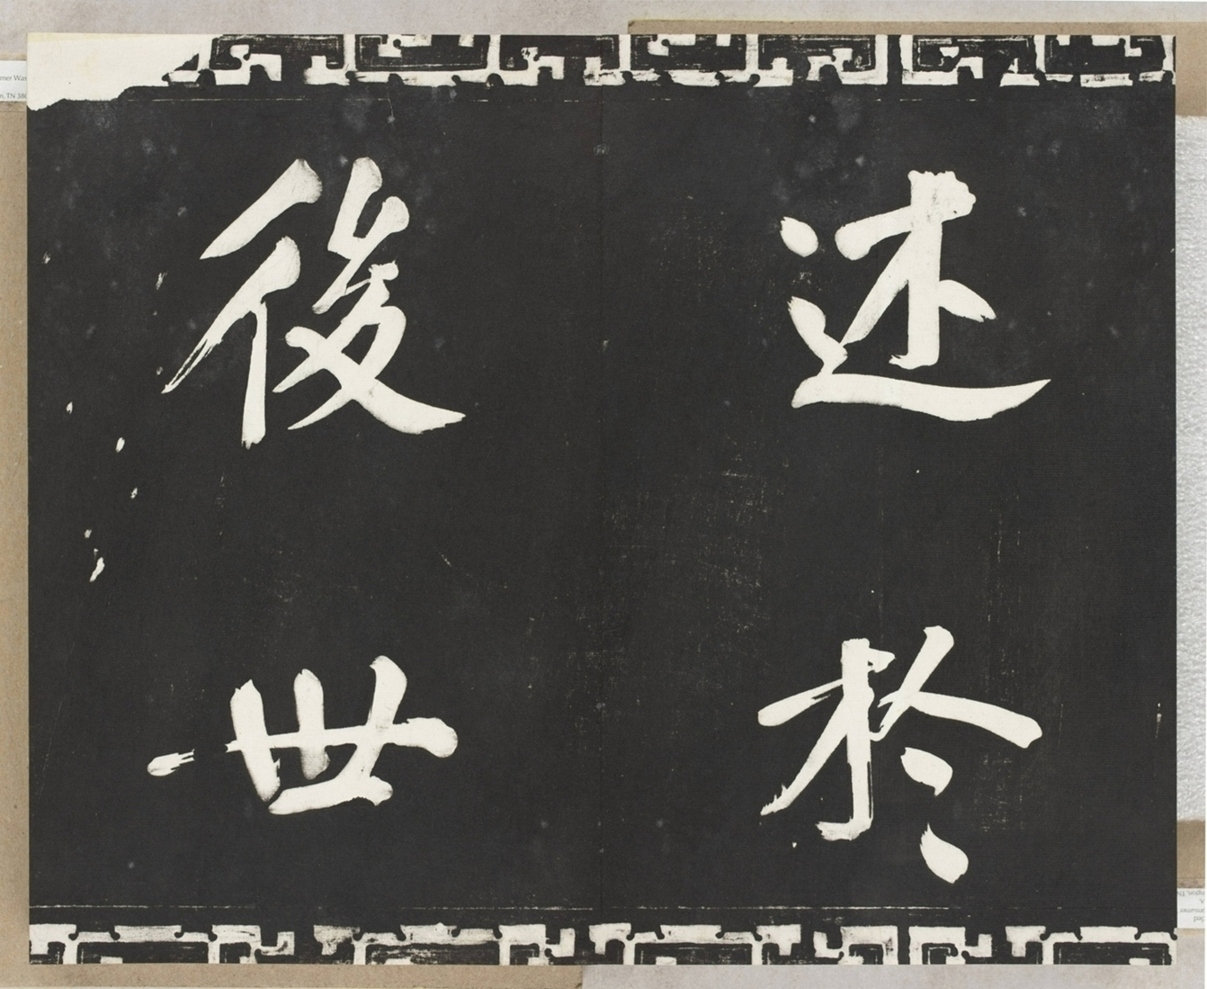 述於
後世